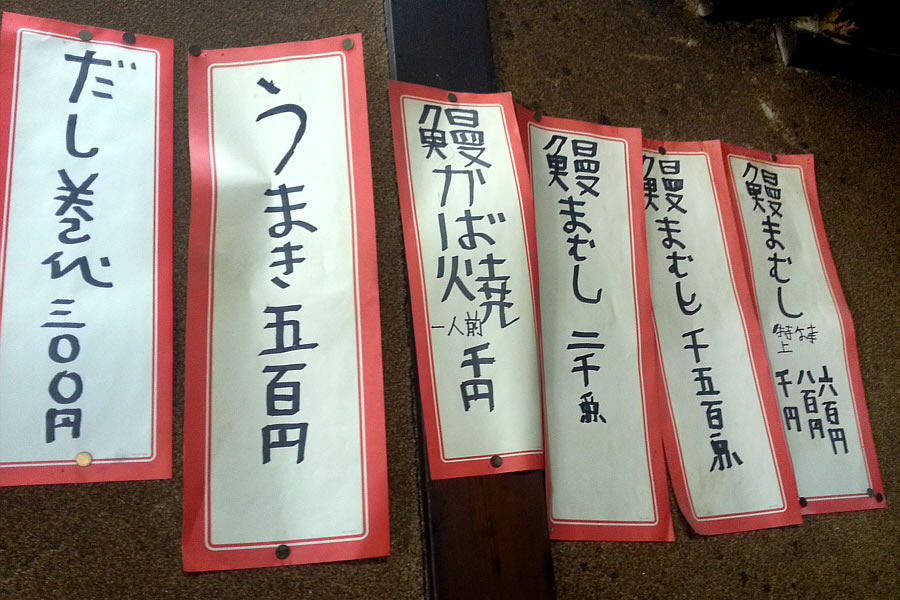 だし巻
三〇〇円
うまき五百円
鰻かば焼
一人前
千円
鰻まむし 二千
鰻まむし 千五百
鰻まむし
特上
六百円
八百円
千円